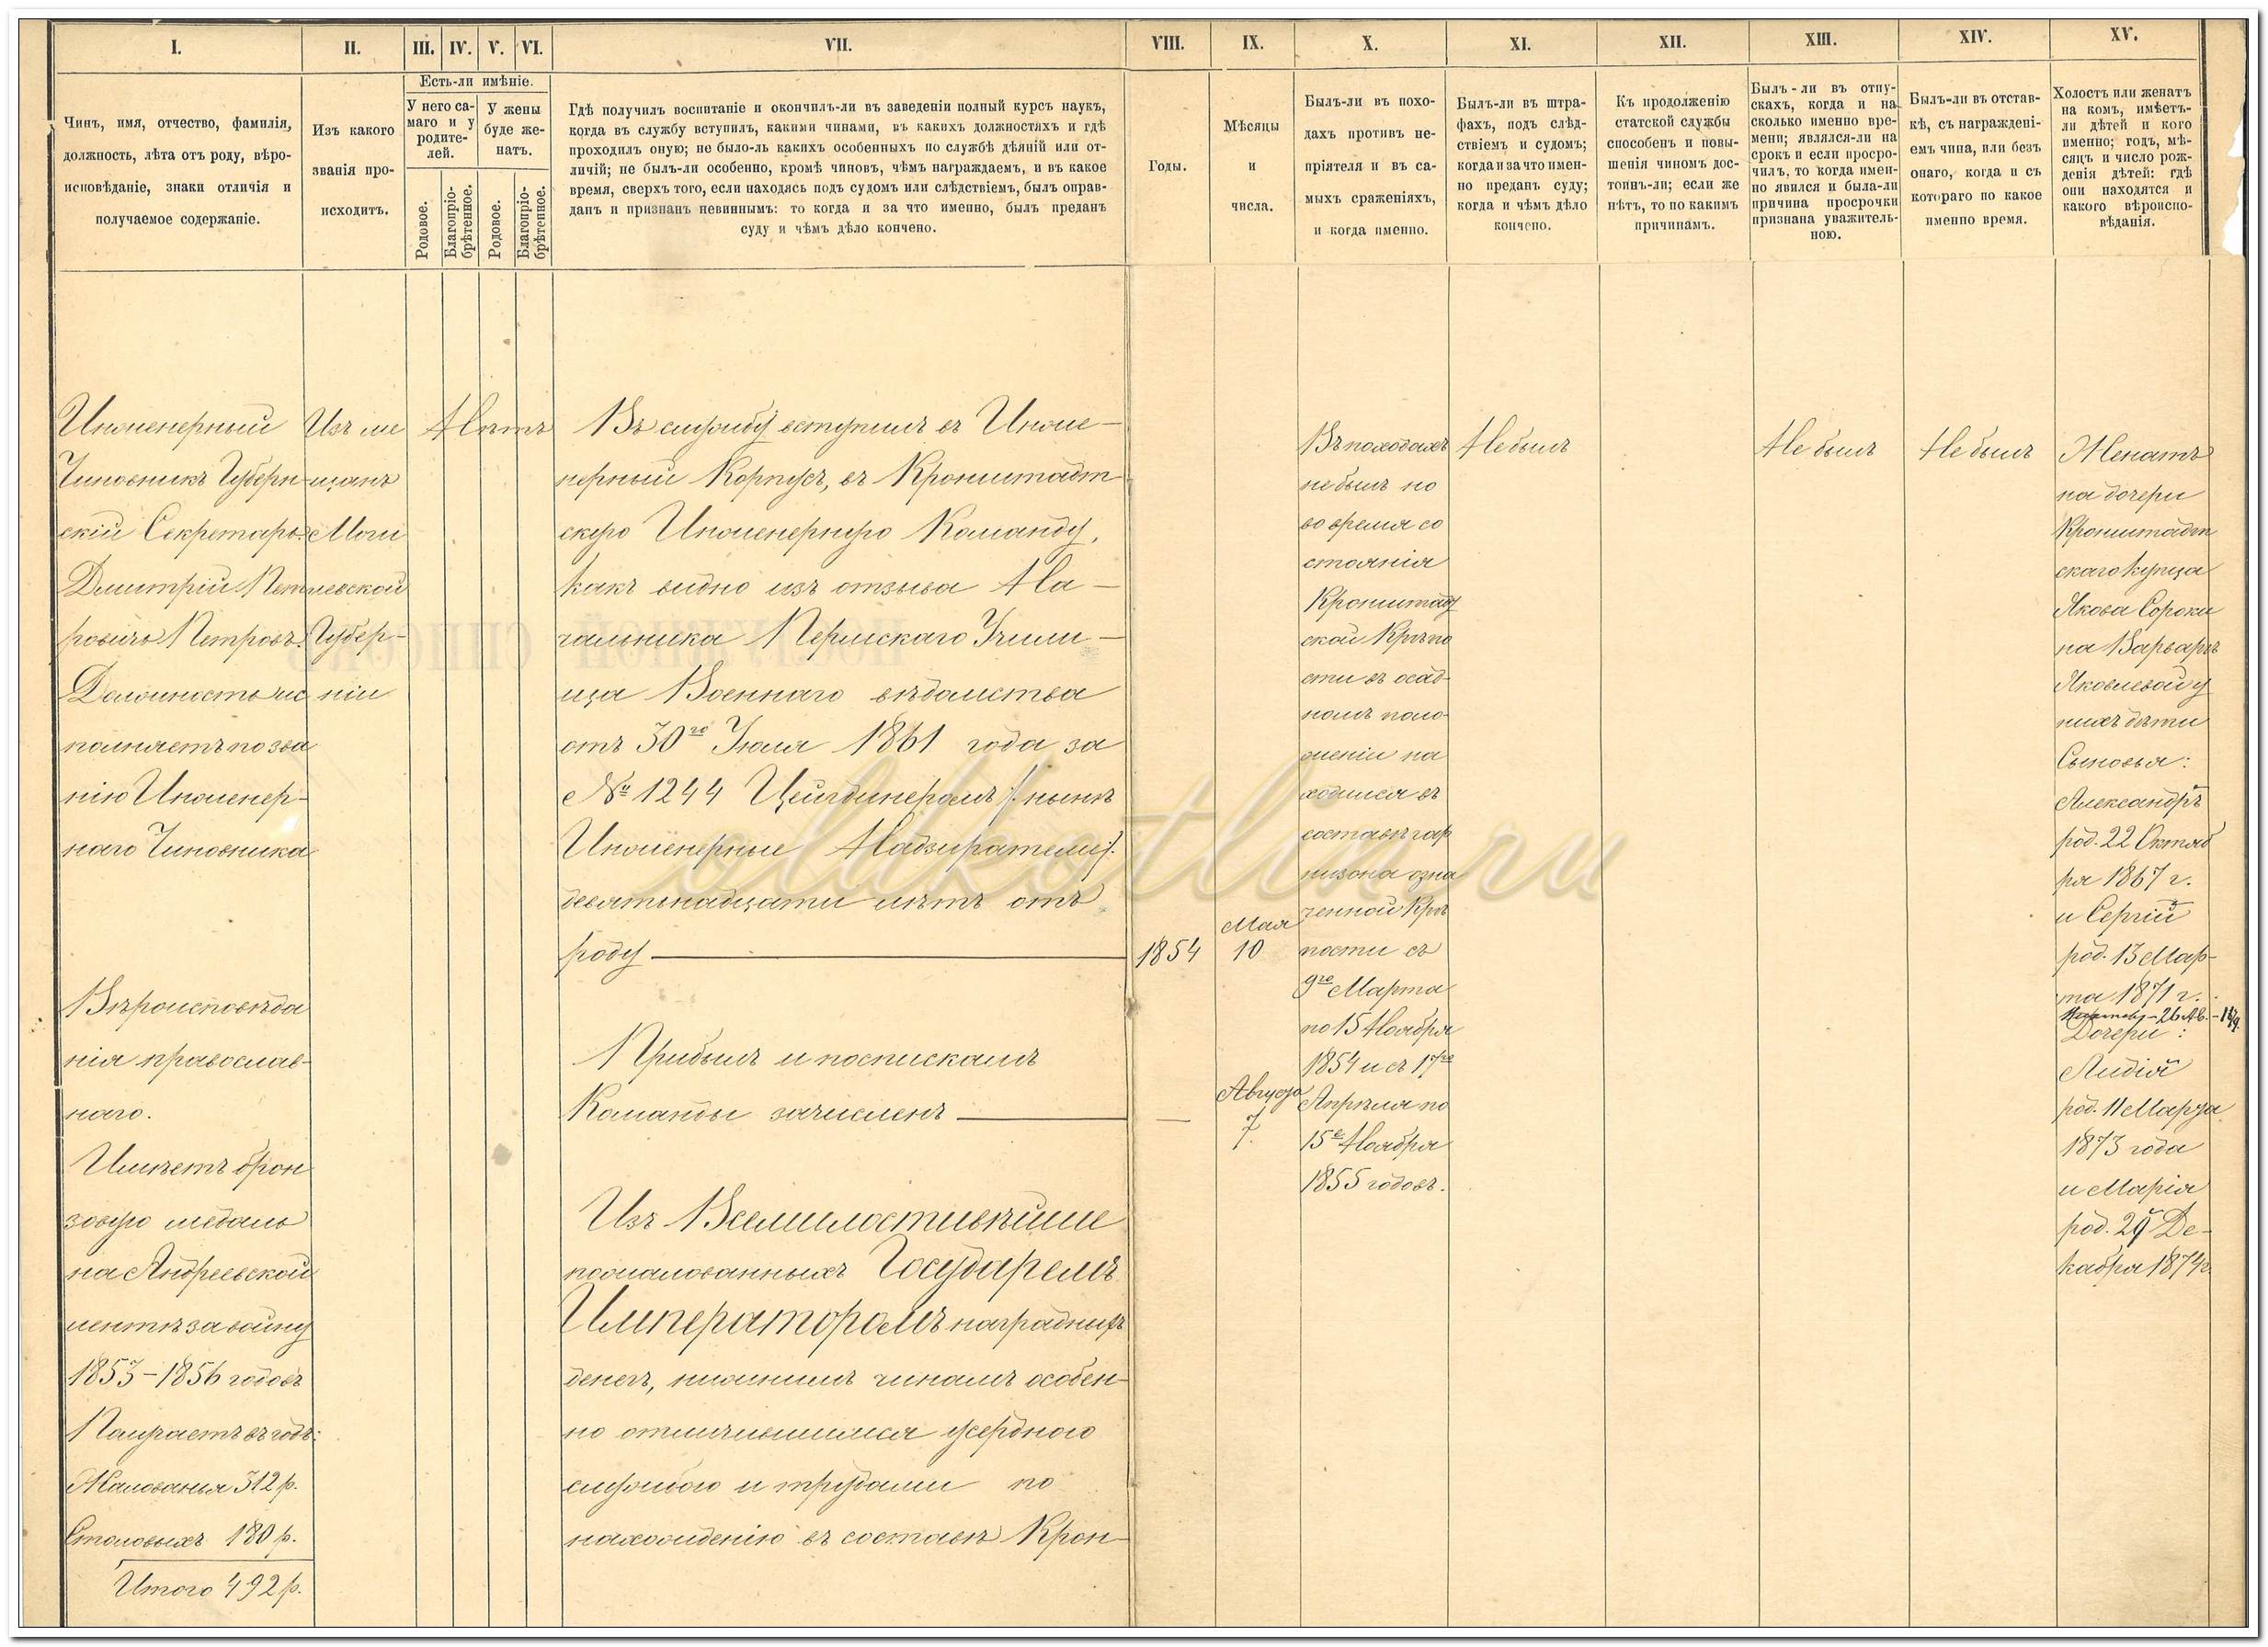 I.
II.
III.
IV.
V.
VI.
VII.
VIII.
IX.
X.
XI.
XII.
XIII.
XIV.
XV.
Чинъ, имя, отчество, фамилія,
должность, лѣта отъ роду, вѣро-
исповѣданіе, знаки отличія и
получаемое содержаніе.
Изъ какого
званія про-
исходитъ.
Есть-ли имѣніе.
У него са-
маго и у
родите-
лей.
У жены
буде же-
натъ.
Родовое.
Благопріо-
брѣтенное.
Родовое.
Благопріо-
брѣтенное.
Гдѣ получилъ воспитаніе и окончилъ-ли въ заведеніи полный курсъ наукъ,
когда въ службу вступилъ, какими чинами, въ какихъ должностяхъ и гдѣ
проходилъ оную; не было-ль какихъ особенныхъ по службѣ дѣяній или от-
личій; не былъ-ли особенно, кромѣ чиновъ, чѣмъ награждаемъ, и въ какое
время, сверхъ того, если находясь подъ судомъ или слѣдствіемъ, былъ оправ-
данъ и признанъ невиннымъ: то когда и за что именно, былъ преданъ
суду и чѣмъ дѣло кончено.
Годы.
Мѣсяцы
и
числа.
Былъ-ли въ похо-
дахъ противъ не-
пріятеля и въ са-
мыхъ сраженіяхъ,
и когда именно.
Былъ-ли въ штра-
фахъ, подъ слѣд-
ствіемъ и судомъ;
когда и за что имен-
но преданъ суду;
когда и чѣмъ дѣло
кончено.
Къ продолженію
статской службы
способенъ и повы-
шенія чиномъ дос-
тоинъ-ли; если же
нѣтъ, то по какимъ
причинамъ.
Былъ-ли въ отпу-
скахъ, когда и на
сколько именно вре-
мени; являлся-ли на
срокъ и если просро-
чилъ, то когда имен-
но явился и была-ли
причина просрочки
признана уважитель-
ною.
Былъ-ли въ отстав-
кѣ, съ награжденi-
емъ чина, или безъ
онаго, когда и съ
котораго по какое
именно время.
Холостъ или женатъ
на комъ, имѣетъ-
ли дѣтей и кого
именно; годъ, мѣ-
сяцъ и число рож-
денія дѣтей: гдѣ
они находятся и
какого вѣроиспо-
вѣданія.
Инженерный
Чиновникъ Губерн-
скій Секретарь
Дмитрій Пет
ровичъ Петровъ.
Должность ис
полняетъ по зва
нію Инженер-
наго Чиновника
Вѣроисповѣда
нія православ-
наго.
Имѣетъ брон
зовую медаль
на Андреевской
лентѣ за войну
1853-1856 годовъ
Получаетъ въ годъ:
Жалованья 312 р.
Столовыхъ 180 р.
Итого 492 р.
Изъ ме
щанъ
Моги
левской
Губер-
ніи
Нѣтъ
Въ службу вступилъ въ Инже-
нерный Корпусъ, въ Кронштадт
скую Инженерную Команду,
какъ видно изъ отзыва На-
чальника Пермскаго Учили-
ща Военнаго вѣдомства
отъ 30го Іюля 1861 года за
№ 1244 Цейгдинеромъ /: нынѣ
Инженерные Надзиратели :/
девятнадцати лѣтъ отъ
роду
1854
Мая
10
Прибылъ и по спискамъ
Команды зачисленъ
—
Августа
7.
Изъ Всемилостивѣйше
пожалованныхъ Государемъ
Императоромъ наградныхъ
денегъ, нижнимъ чинамъ особен-
но отличившимся усердною
службою и трудами по
нахожденію въ составѣ Крон-
Въ походахъ
не былъ но
во время со
стоянія
Кронштад
ской Крѣпо
сти въ осад-
номъ поло-
женіи на
ходился въ
составѣ гар
низона озна
ченной Крѣ
пости съ
9го Марта
по 15 Ноября
1854 и съ 17го
Апрѣля по
15е Ноября
1855 годовъ.
Не былъ
Не былъ
Не былъ
Женатъ
на дочери
Кронштадт
скаго купца
Якова Сороки
на Варварѣ
Яковлевой у
нихъ дѣти
Сыновья:
Александръ
род. 22 Октяб
ря 1867 г.
и Сергій
род. 13 Мар-
та 1871 г.
Дочери:
Лидія
род. 11 Марта
1873 года
и Марія
род. 29 Де-
кабря 1874 г.
oldkotlin.ru